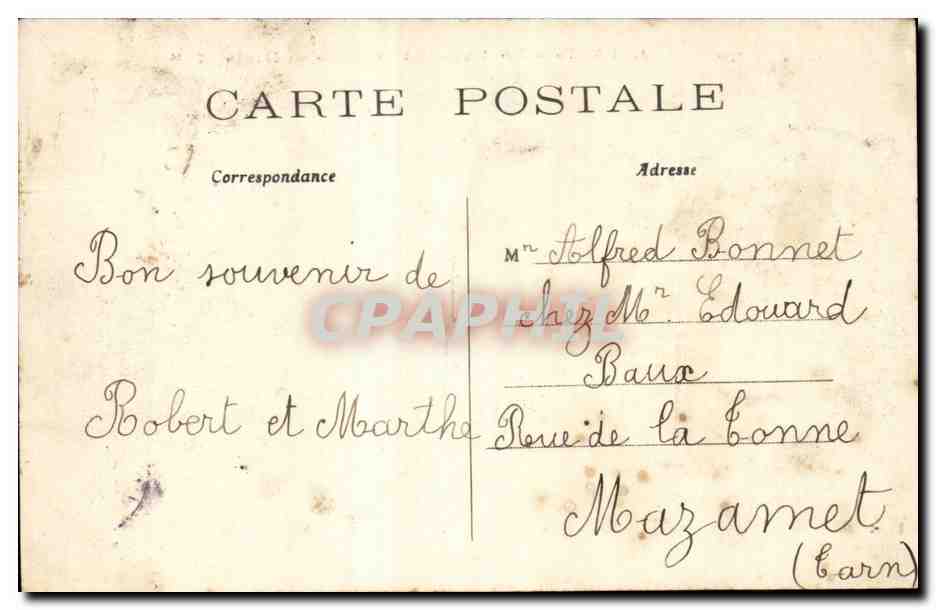 CARTE POSTALE
Correspondance
Adresse
Bon souvenir de
Robert et Marthe
Mr Alfred Bonnet
chez Mr. Edouard
Baux
Rue de la Tonne
Mazamet
(Tarn)
CPAPHIL